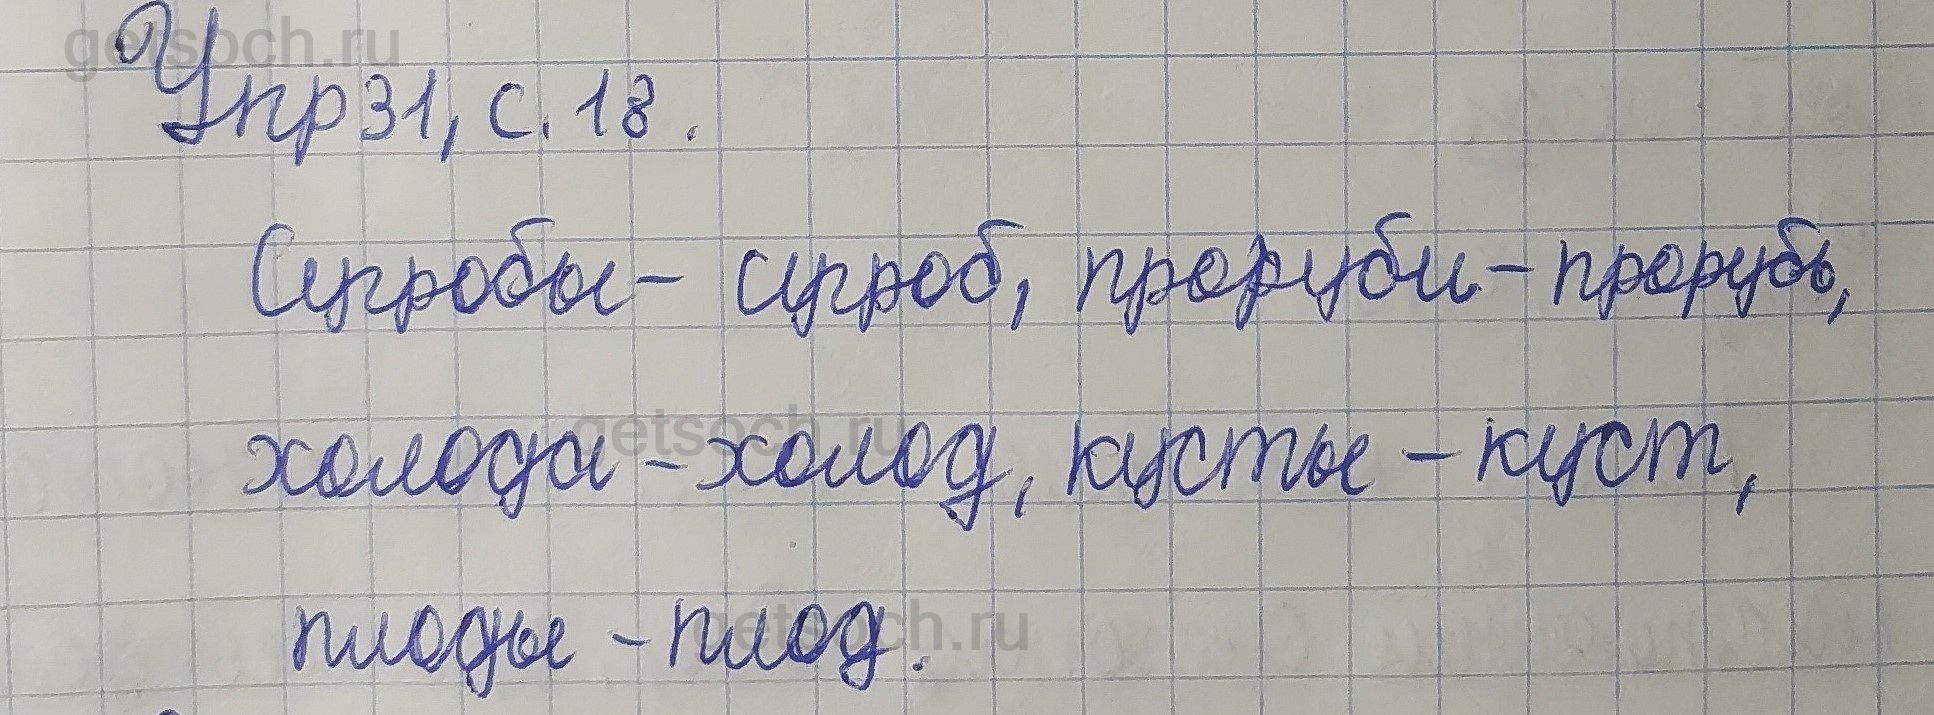 getsoch.ru
Упр 31, с. 18.
Сугробы - сугроб, проруби - прорубь,
getsoch.ru
холода - холод, кусты - куст,
getsoch.ru
плоды - плод.